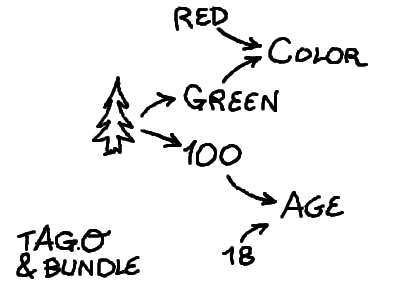 RED
COLOR
GREEN
100
AGE
18
TAGO
& BUNDLE